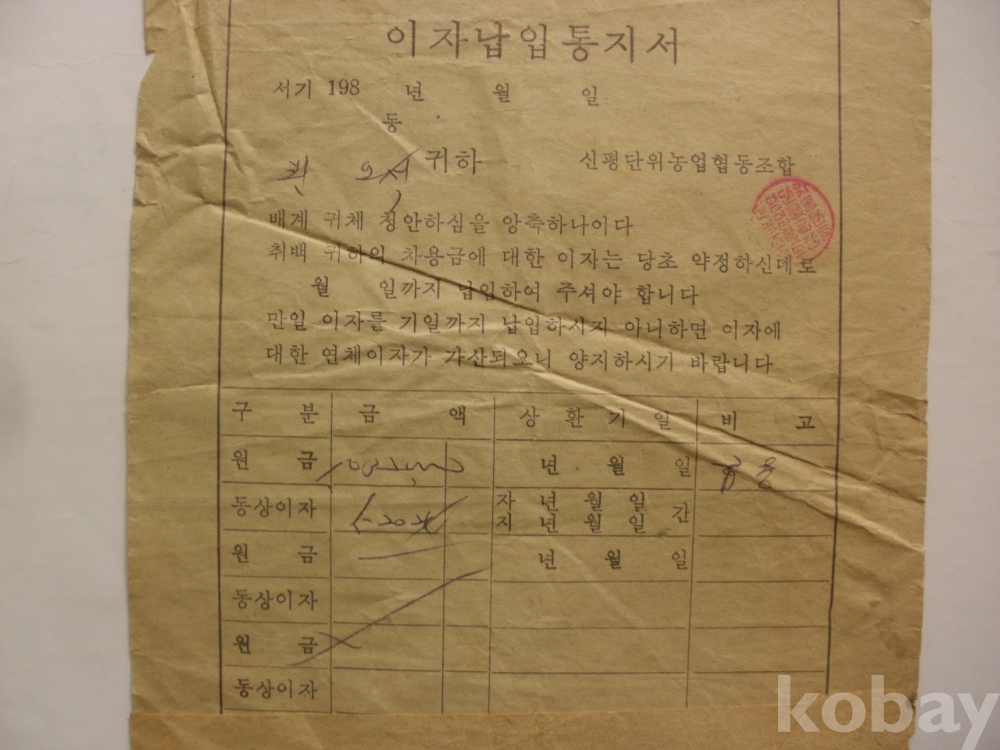 이자납입통지서
서기 198 년 월 일
동
귀하 신평단위농업협동조합
배계 귀체 정안하심을 앙축하나이다
취백 귀하의 차용금에 대한 이자는 당초 약정하신데로
월 일까지 납입하여 주셔야 합니다
만일 이자를 기일까지 납입하시지 아니하면 이자에
대한 연체이자가 가산되오니 양지하시기 바랍니다
구 분 금 액 상 환 기 일 비 고
원 금 년 월 일
동상이자 자 년 월 일
지 년 월 일 간
원 금 년 월 일
동상이자
원 금
동상이자
kobay